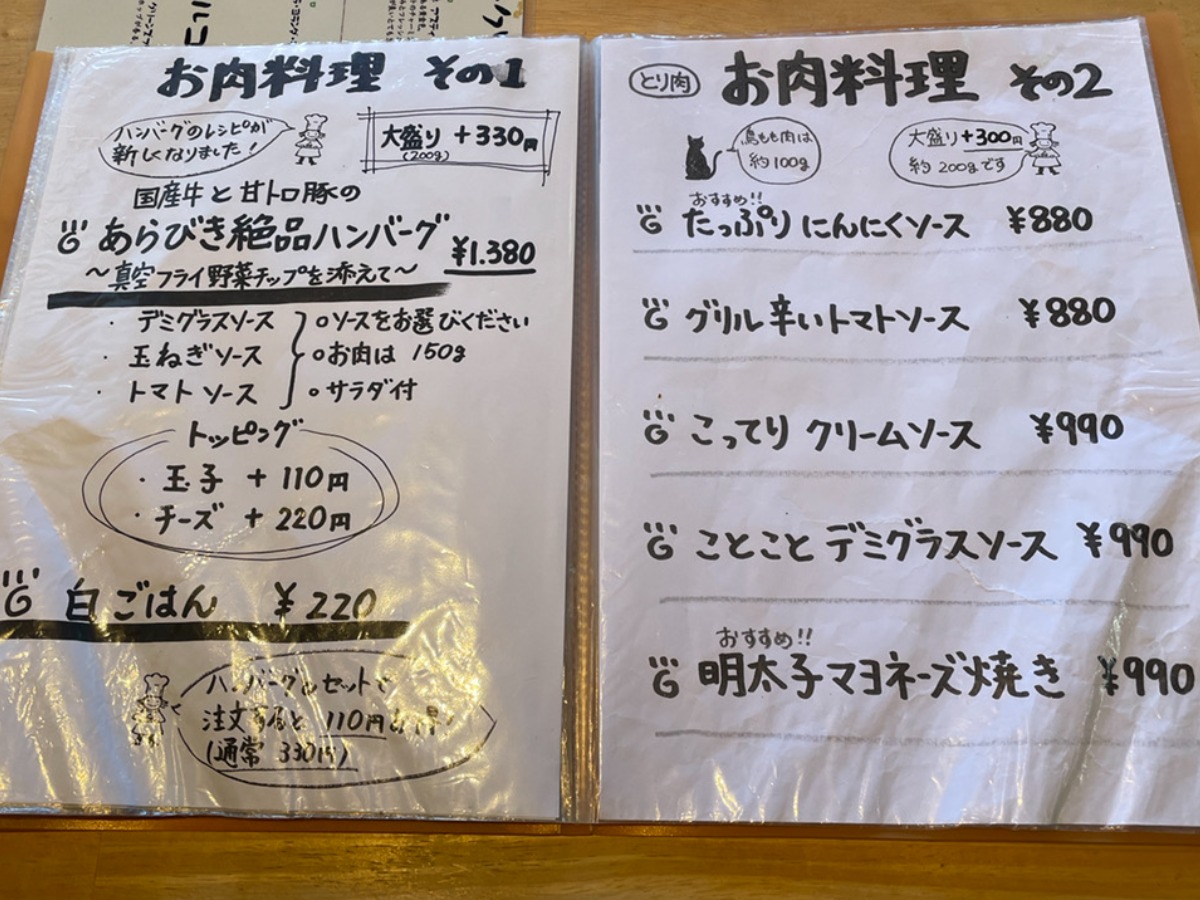 お肉料理 その1
ハンバーグのレシピが
新しくなりました！
大盛り +330円
(200g)
国産牛と甘トロ豚の
あらびき絶品ハンバーグ ¥1.380
～真空フライ野菜チップを添えて～
・デミグラスソース
・玉ねぎソース
・トマトソース
○ソースをお選びください
○お肉は 150g
○サラダ付
トッピング
・玉子 + 110円
・チーズ + 220円
白ごはん ¥220
ハンバーグのセットで
注文すると 110円お得!
(通常 330円)
とり肉 お肉料理 その2
鳥もも肉は
約100g
大盛り+300円
約 200gです
おすすめ!!
たっぷりにんにくソース ¥880
グリル辛いトマトソース ¥880
こってりクリームソース ¥990
ことことデミグラスソース ¥990
おすすめ!!
明太子マヨネーズ焼き ¥990